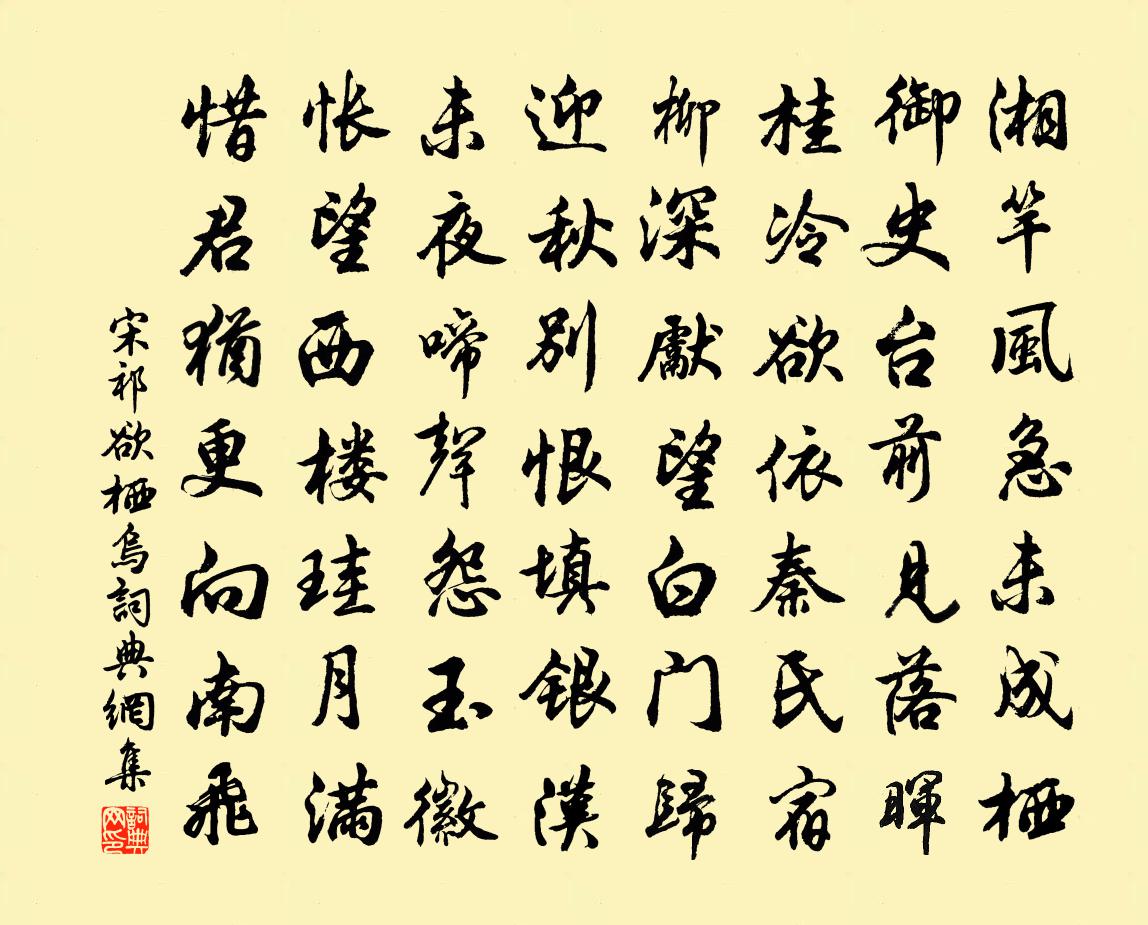 湘竿風急未成栖
御史台前見落暉
桂冷欲依秦氏宿
柳深獻望白门歸
迎秋別恨填銀漢
未夜啼聲怨玉徽
怅望西楼珪月滿
惜君猶更向南飛
宋祁欲栖烏詞典網集
詞典网印